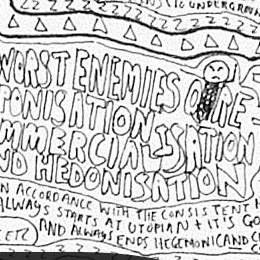 IG UNDERGROUN
WORST ENEMIES O RE-
PONISATION
MMERCIALISATION
ND HEDONISATION
N ACCORDANCE WITH THE CONSISTENT
ALWAYS STARTS AT UTOPIAN + IT'S GO
ETC AND ALWAYS ENDS HEGEMONIC AND C